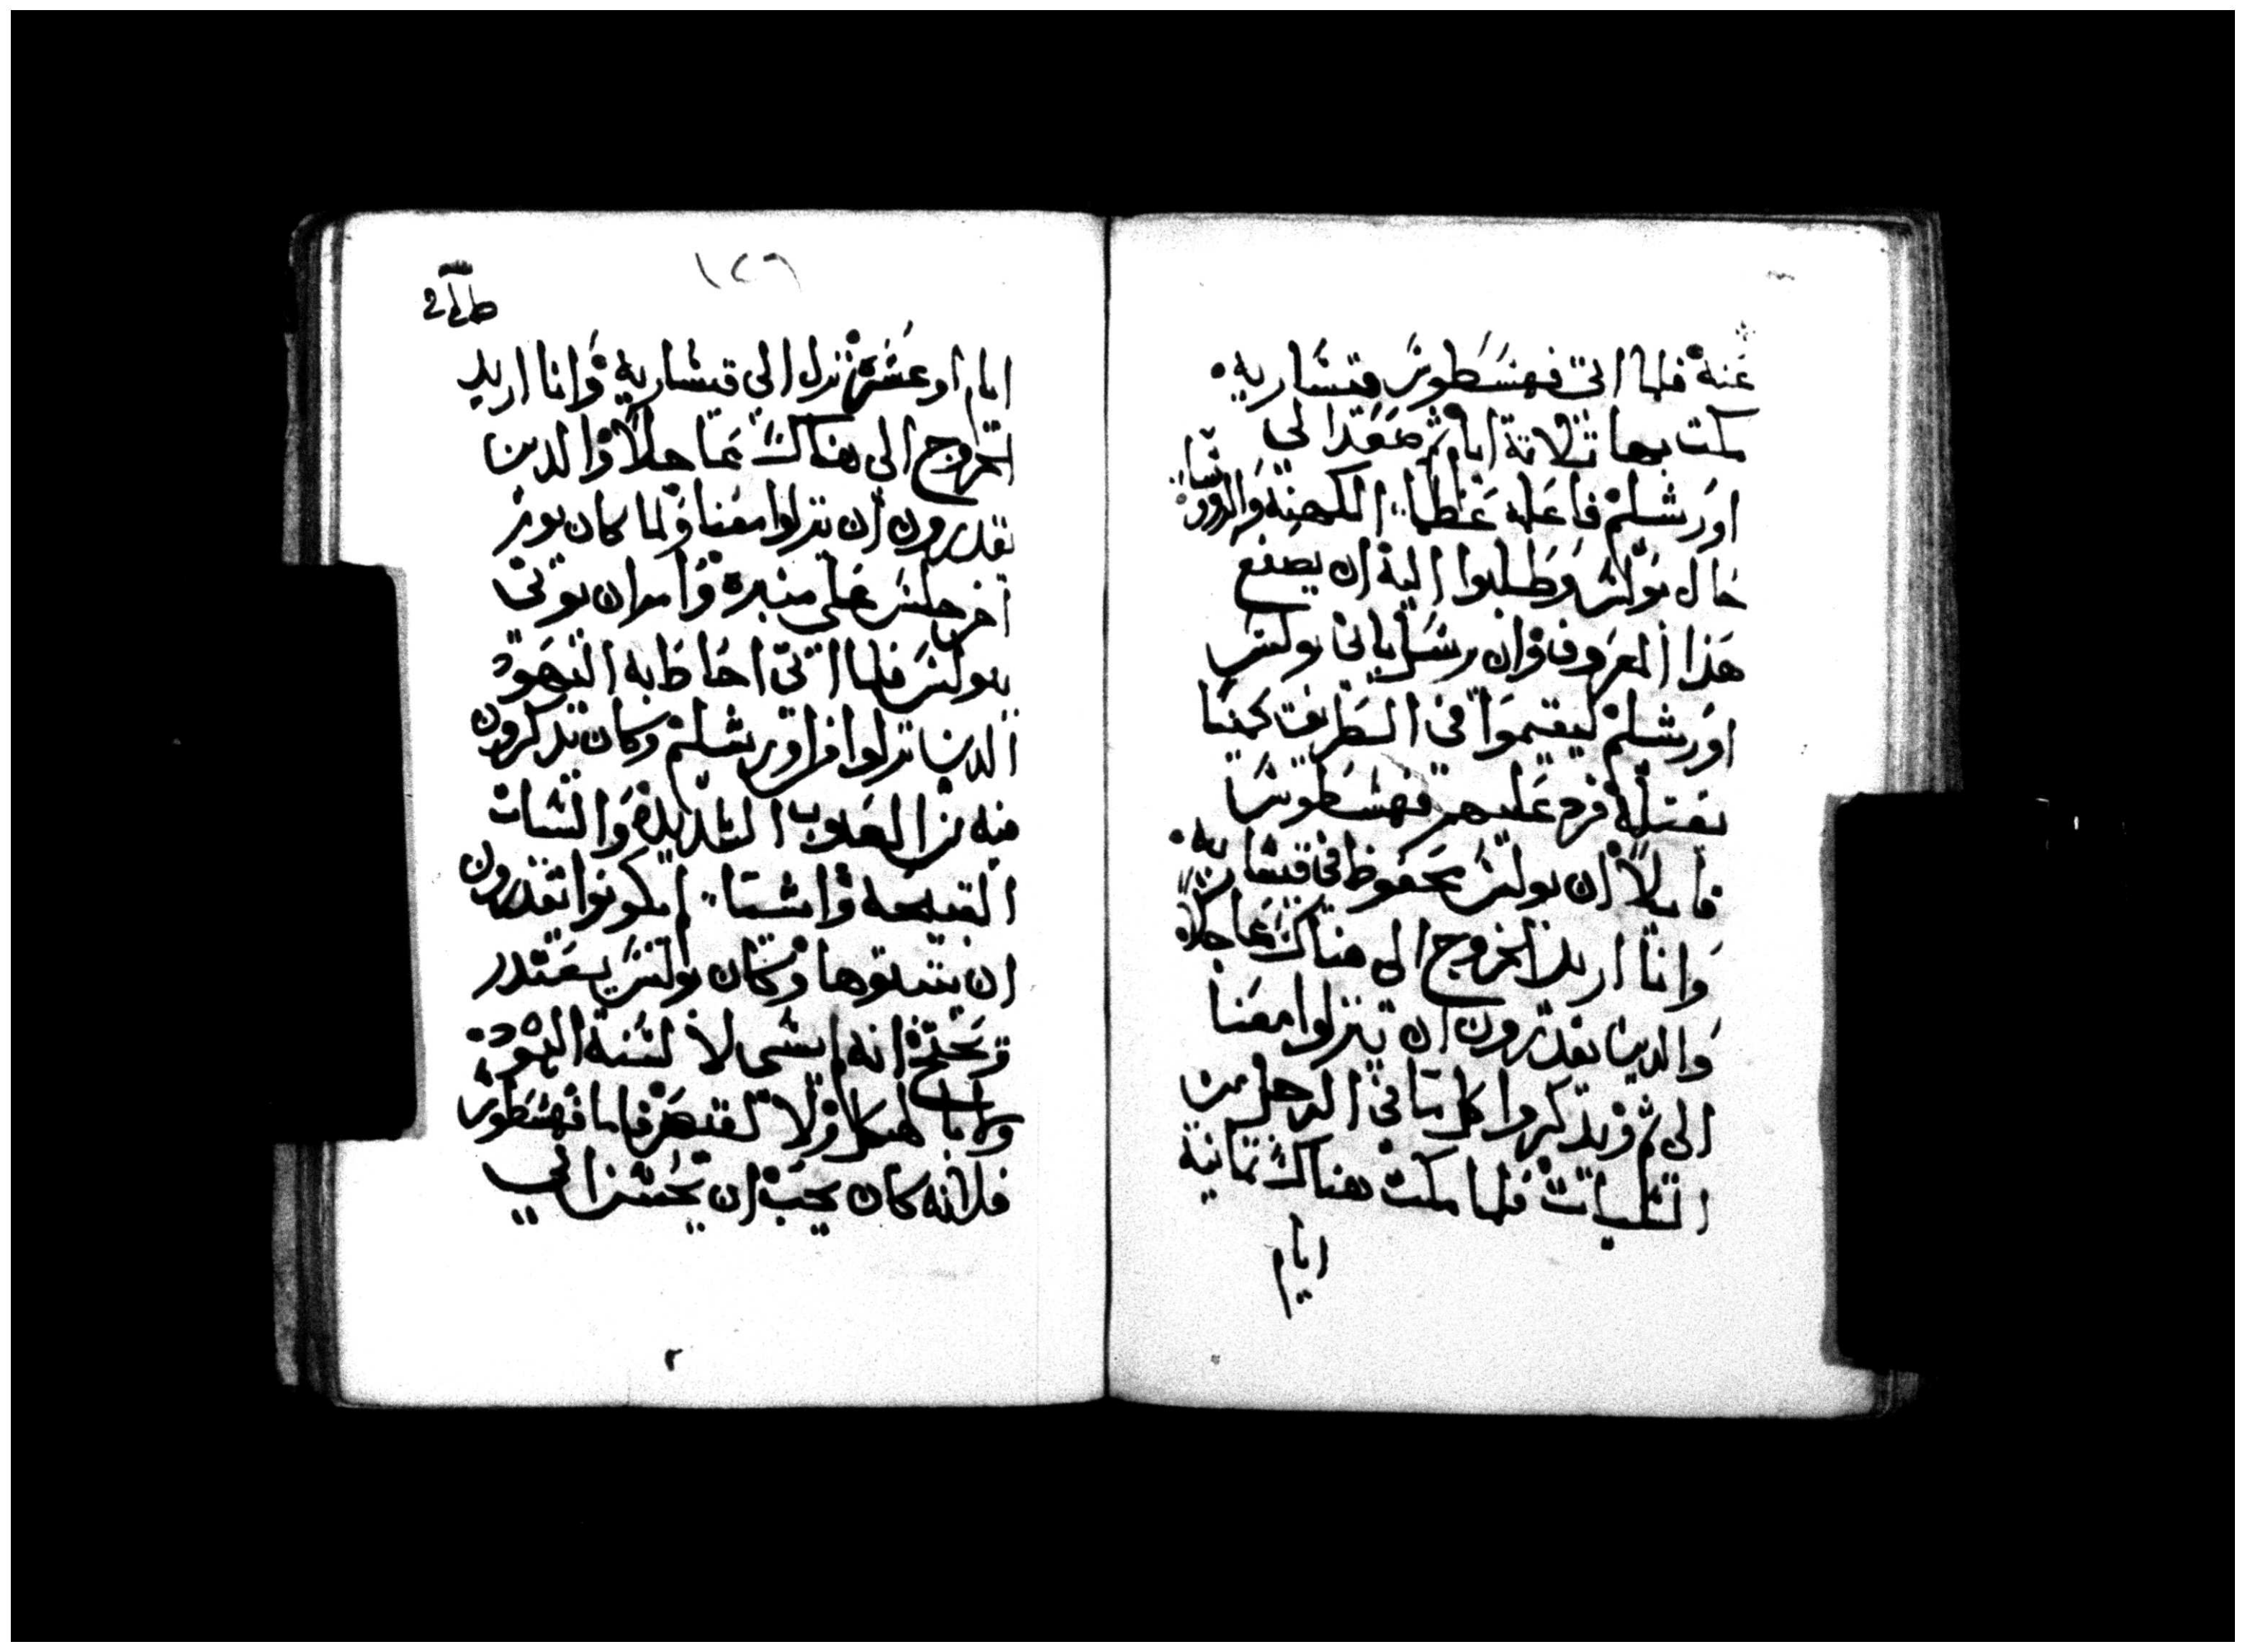 عنه فلما اتى فهسطوس قيسارية
مكت بها تلاتة ايام ثم صعد الى
اورشليم فاعله عظما الكهنة والروسا
حال بولس وطلبوا اليه ان يصنع
هذا المعروف وان يرسل ياتى بولس
اورشليم ليقيموا في الطريق كمينا
بقتله فرد عليهم فهسطوس
قايلا ان بولس محفوظ في قيسارية
وانا اريد الخروج الى هناك عاجلا
والدين يقدرون ان ينزلوا معنا
الى ثم ويدكروا كل ما في الرجل من
التلبات فلما مكت هناك تمانية
ايام
١٢٩
ايام او عشرة نزل الى قيسارية وانا اريد
الخروج الى هناك عاجلا والدين
يقدرون ان ينزلوا معنا ولما كان يوم
اخر جلس على منبره وامر ان يوتى
ببولس فلما اتى احاط به اليهود
الدين نزلوا من اورشليم وكان يدكرون
فيه من العيوب الشديدة والشيات
القبيحة واشيا لم يكونوا يقدرون
ان يثبتوها وكان بولس يعتدر
ويحتج انه لم يسى لا لسنة اليهود
ولا لهيكل ولا لقيصر فاما فهسطوس
فلانه كان يحب ان يحسن الى